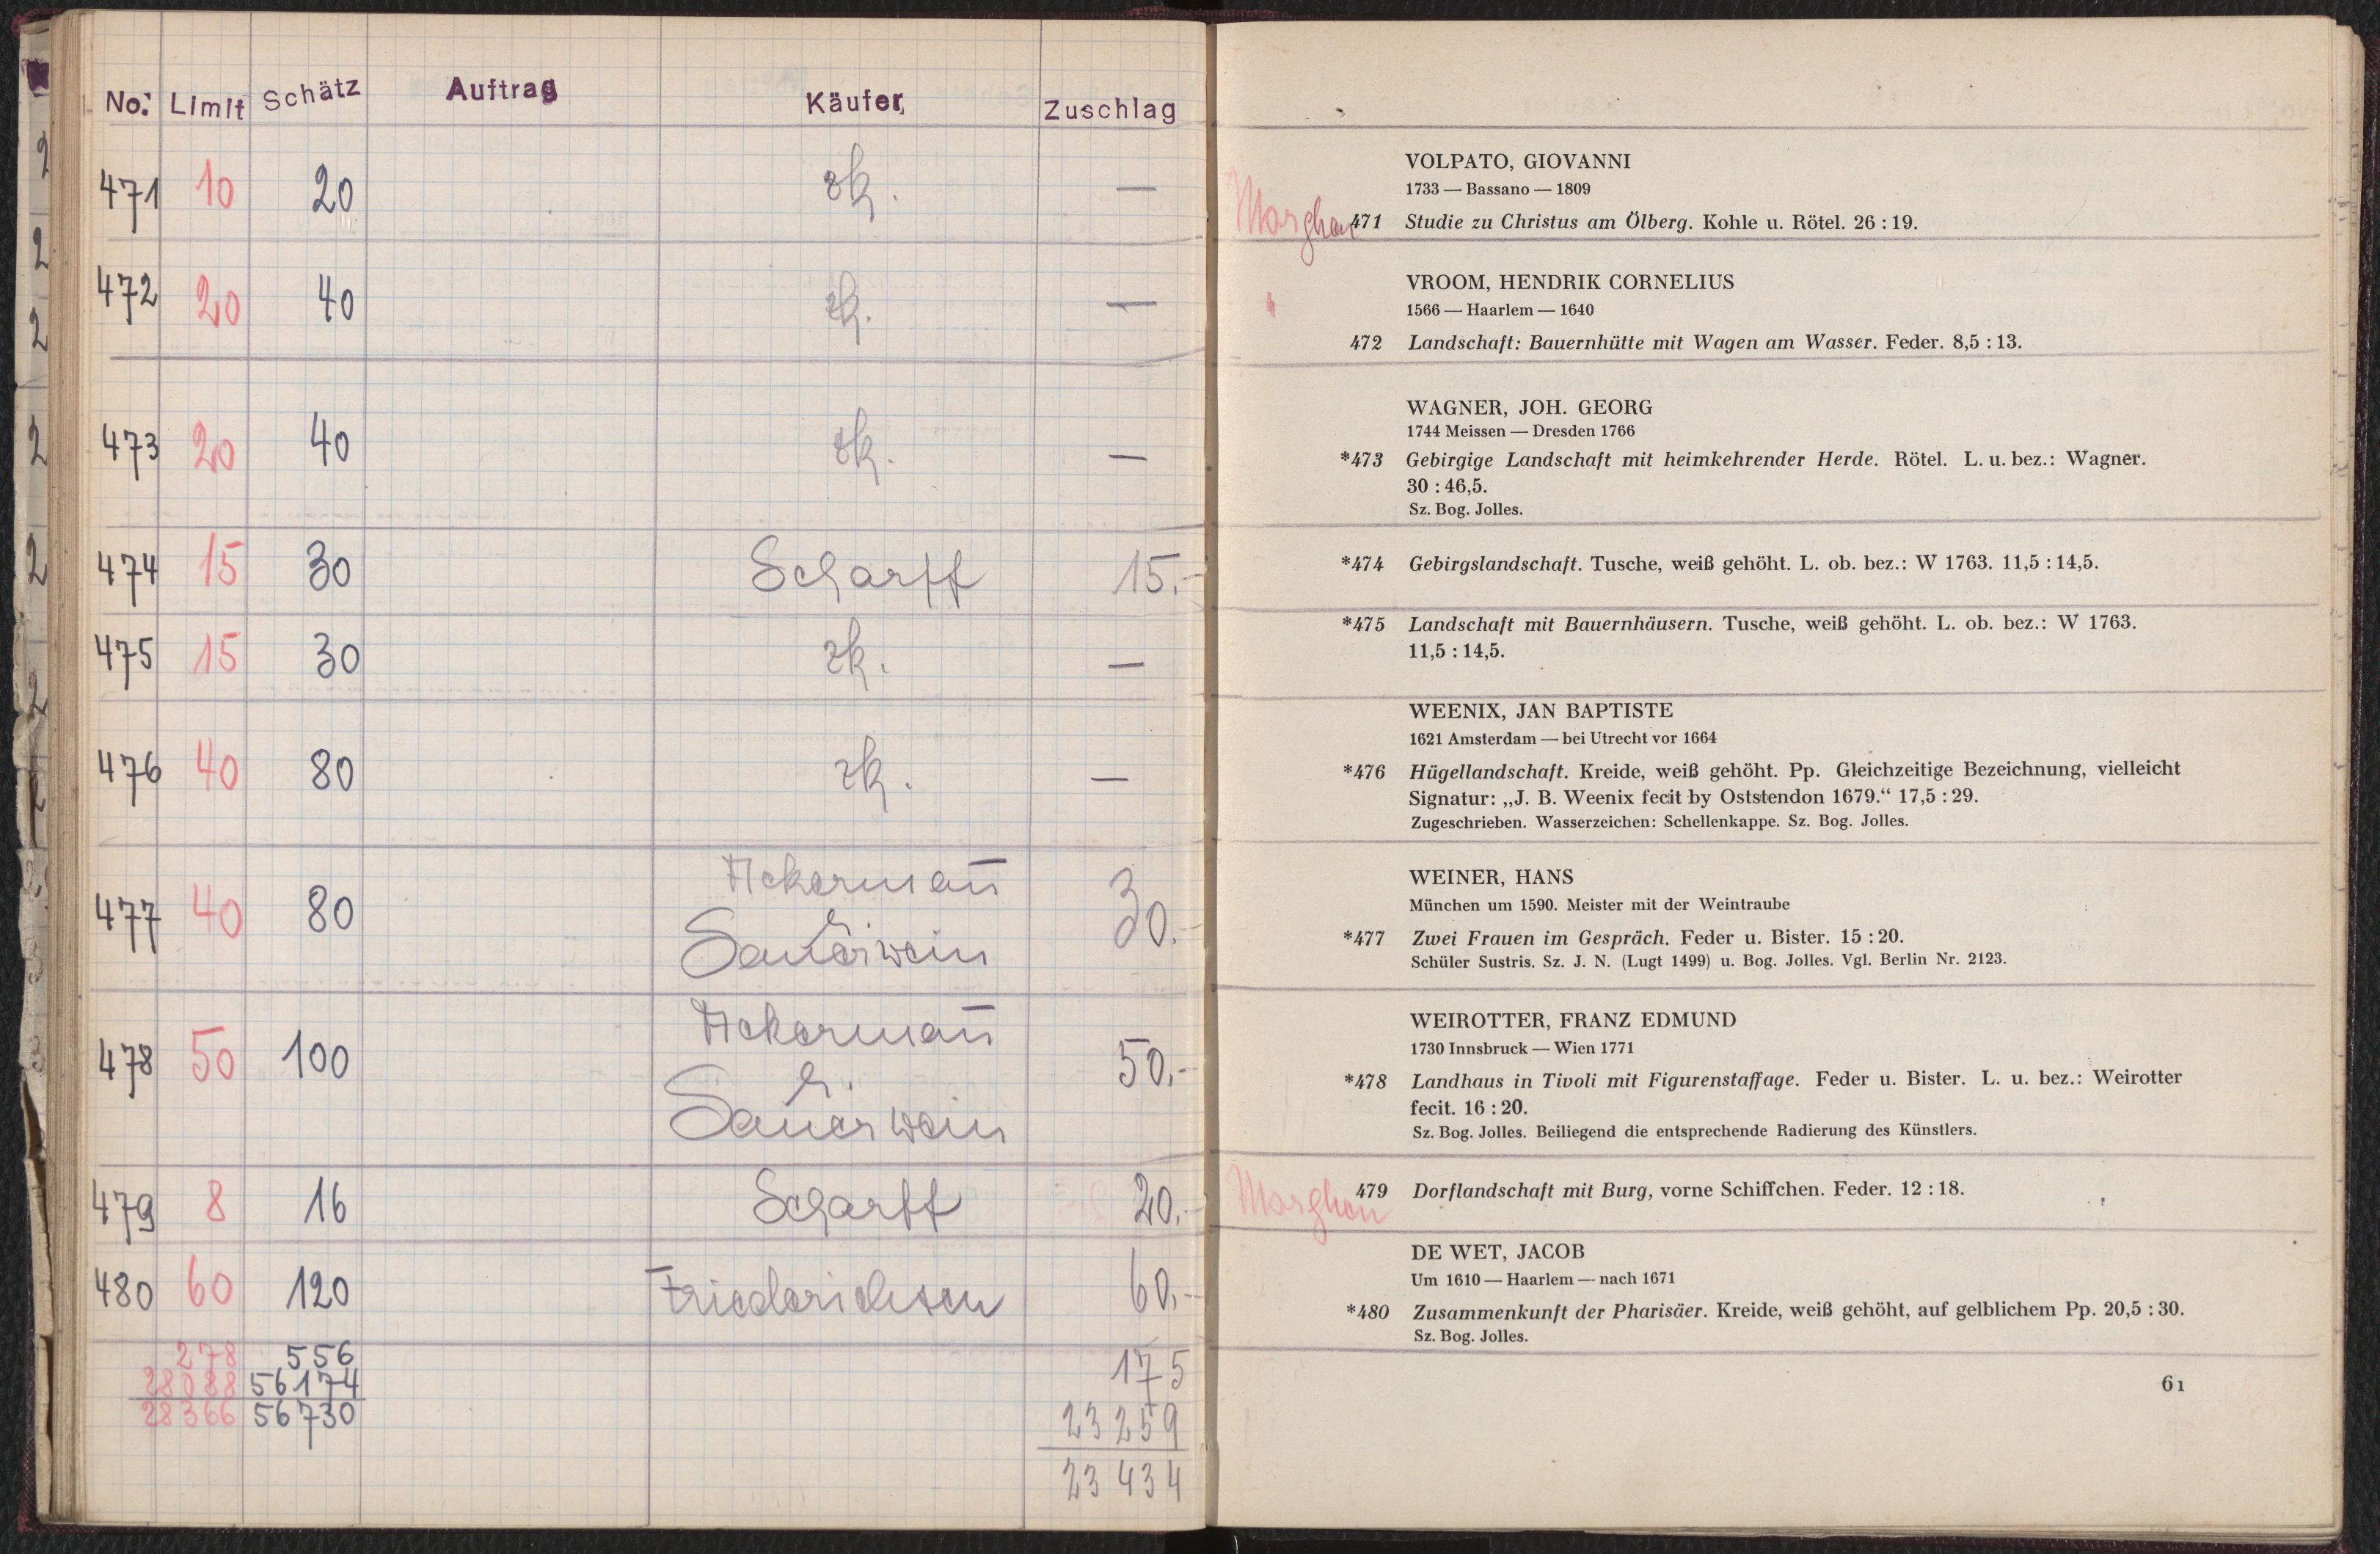 No. Limit Schätz Auftrag Käufer, Zuschlag
471 10 20 zk. —
472 20 40 zk. —
473 20 40 zk. —
474 15 30 Scharff 15.-
475 15 30 zk. —
476 40 80 zk. —
477 40 80 Ackermañ 30.-
Sauerwein
478 50 100 Ackermañ 50,-
Sauerwein
479 8 16 Scharff 20.-
480 60 120 Friederichsen 60,-
278 556 175
28088 56174 23259
28366 56730 23434
VOLPATO, GIOVANNI
1733 — Bassano — 1809
Morghen 471 Studie zu Christus am Ölberg. Kohle u. Rötel. 26 : 19.
VROOM, HENDRIK CORNELIUS
1566 — Haarlem — 1640
472 Landschaft: Bauernhütte mit Wagen am Wasser. Feder. 8,5 : 13.
WAGNER, JOH. GEORG
1744 Meissen — Dresden 1766
*473 Gebirgige Landschaft mit heimkehrender Herde. Rötel. L. u. bez.: Wagner.
30 : 46,5.
Sz. Bog. Jolles.
*474 Gebirgslandschaft. Tusche, weiß gehöht. L. ob. bez.: W 1763. 11,5 : 14,5.
*475 Landschaft mit Bauernhäusern. Tusche, weiß gehöht. L. ob. bez.: W 1763.
11,5 : 14,5.
WEENIX, JAN BAPTISTE
1621 Amsterdam — bei Utrecht vor 1664
*476 Hügellandschaft. Kreide, weiß gehöht. Pp. Gleichzeitige Bezeichnung, vielleicht
Signatur: „J. B. Weenix fecit by Oststendon 1679.“ 17,5 : 29.
Zugeschrieben. Wasserzeichen: Schellenkappe. Sz. Bog. Jolles.
WEINER, HANS
München um 1590. Meister mit der Weintraube
*477 Zwei Frauen im Gespräch. Feder u. Bister. 15 : 20.
Schüler Sustris. Sz. J. N. (Lugt 1499) u. Bog. Jolles. Vgl. Berlin Nr. 2123.
WEIROTTER, FRANZ EDMUND
1730 Innsbruck — Wien 1771
*478 Landhaus in Tivoli mit Figurenstaffage. Feder u. Bister. L. u. bez.: Weirotter
fecit. 16 : 20.
Sz. Bog. Jolles. Beiliegend die entsprechende Radierung des Künstlers.
Morghen 479 Dorflandschaft mit Burg, vorne Schiffchen. Feder. 12 : 18.
DE WET, JACOB
Um 1610 — Haarlem — nach 1671
*480 Zusammenkunft der Pharisäer. Kreide, weiß gehöht, auf gelblichem Pp. 20,5 : 30.
Sz. Bog. Jolles.
61